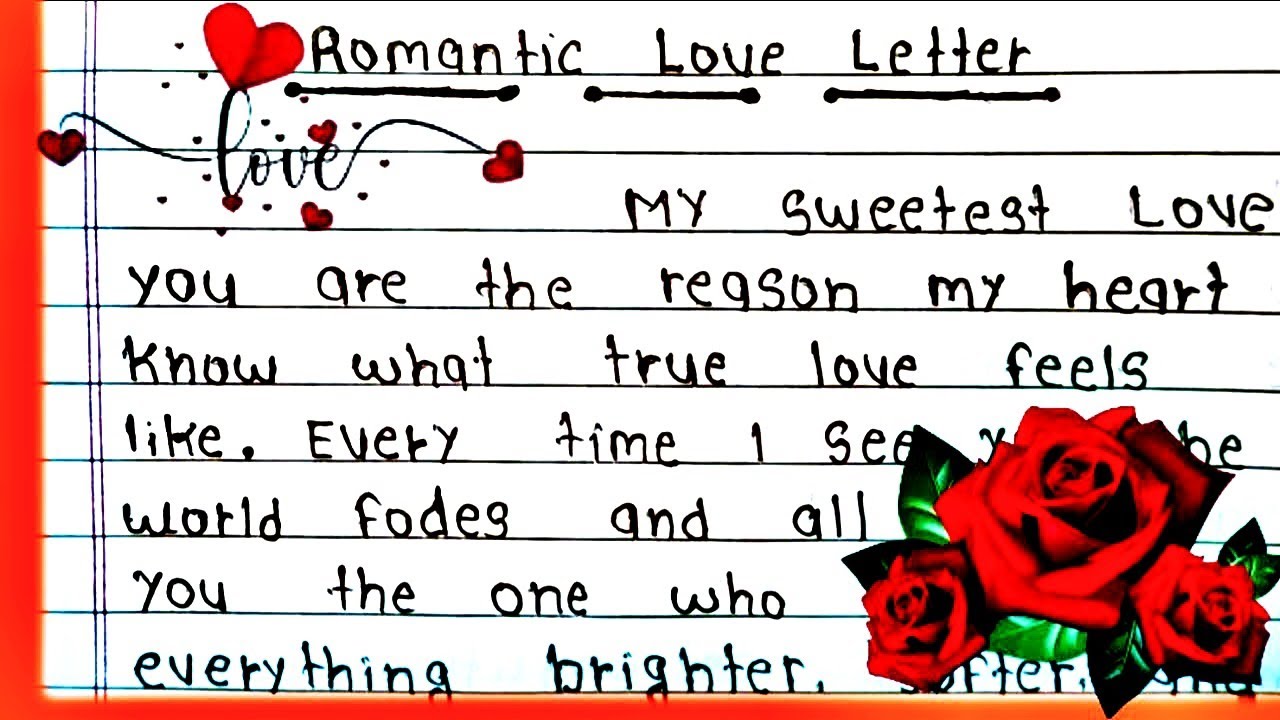 Romantic Love Letter
love
My sweetest Love
you are the reason my heart
Know what true love feels
like. Every time I see
world fodes and all
you the one who
everything brighter,